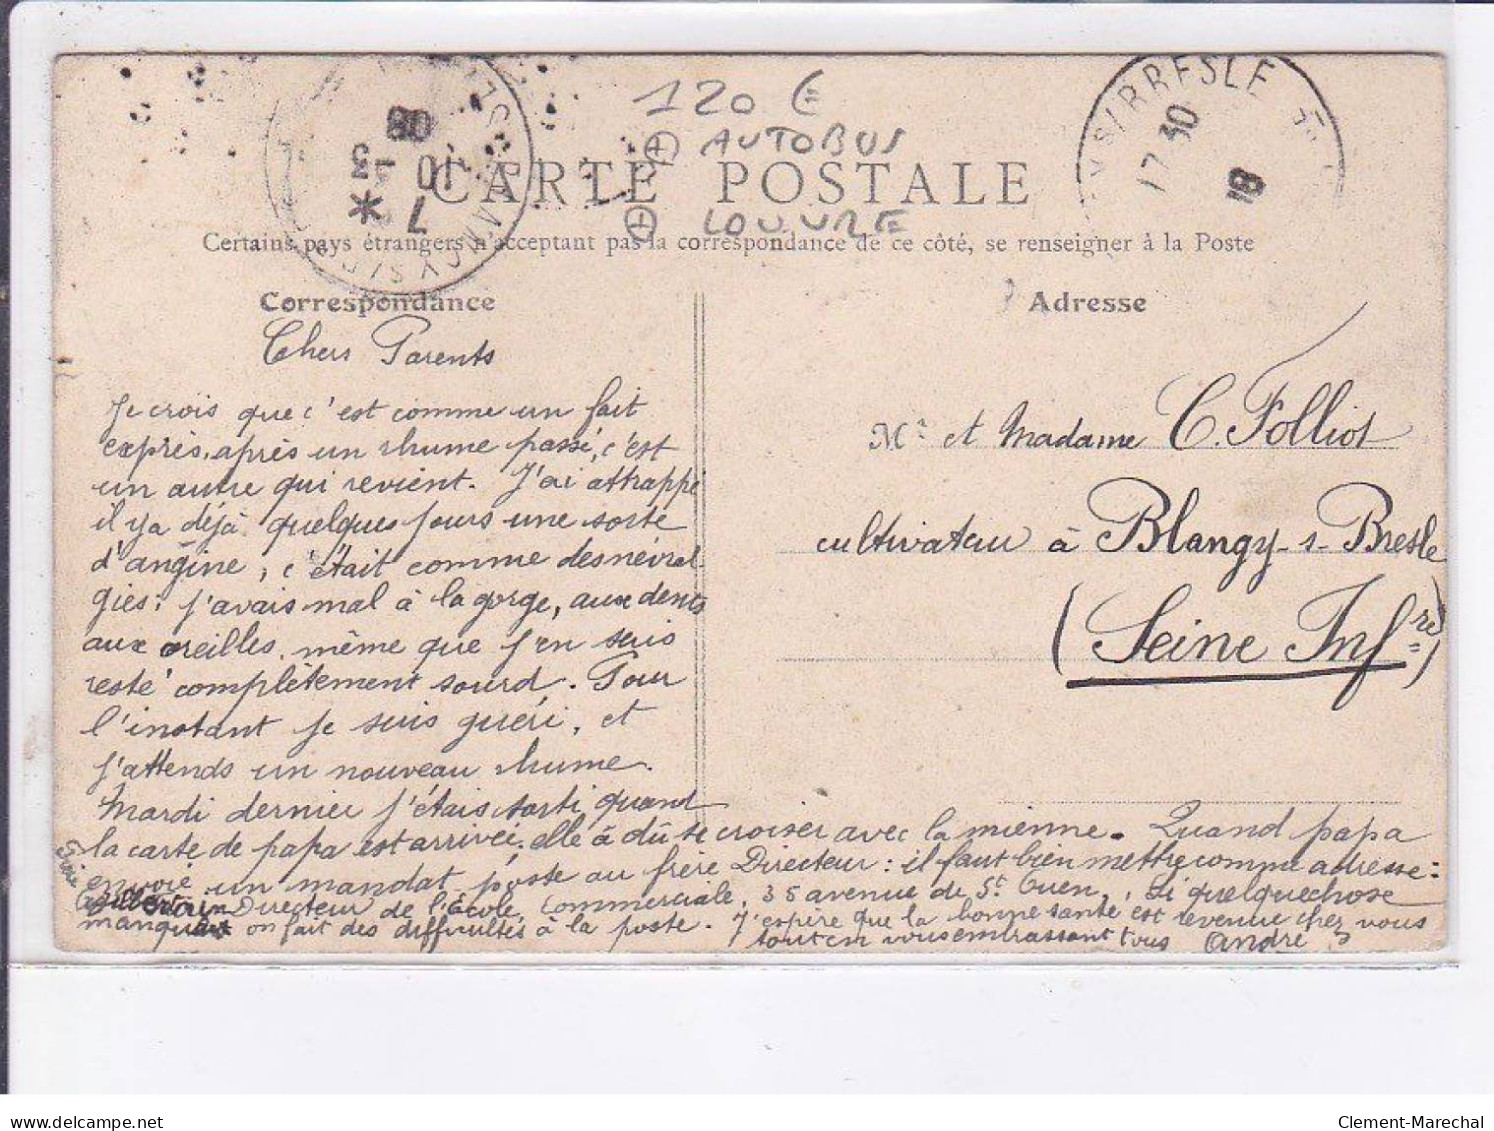 120 €
AUTOBUS
CARTE POSTALE
LOUVRE
Certains pays étrangers n'acceptant pas la correspondance de ce côté, se renseigner à la Poste
Correspondance
Chers Parents
Je crois que c'est comme un fait
exprès, après un rhume passé, c'est
un autre qui revient. J'ai attrappé
il y a déjà quelques jours une sorte
d'angine, c'était comme des névral-
gies; j'avais mal à la gorge, aux dents
aux oreilles, même que j'en suis
resté complètement sourd. Pour
l'instant je suis guéri, et
j'attends un nouveau rhume.
Mardi dernier j'étais sorti quand
la carte de papa est arrivée, elle à dû se croiser avec la mienne. Quand papa
envoie un mandat poste au frère Directeur: il faut bien mettre comme adresse:
Directeur de l'École Commerciale, 35 avenue de St Ouen, Si quelquechose
manquait on fait des difficultés à la poste. J'espère que la bonne santé est revenue chez vous
tout en vous embrassant tous André
Adresse
Mr et Madame C. Folliot
cultivateur à Blangy-s-Bresle
(Seine Infre)
S/BRESLE
17 30
18
7 * 10 - 3
08
Clement-Marechal